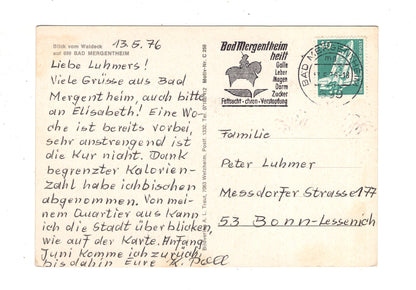 Blick vom Waldeck
auf 699 BAD MERGENTHEIM
13.5.76
Liebe Luhmers!
Viele Grüsse aus Bad
Mergentheim, auch bitte
an Elisabeth! Eine Wo-
che ist bereits vorbei,
sehr anstrengend ist
die Kur nicht. Dank
begrenzter Kalorien-
zahl habe ich bischen
abgenommen. Von mei-
nem Quartier aus kann
ich die Stadt überblicken,
wie auf der Karte. Anfang
Juni komme ich zurück,
bis dahin Eure
Bad Mergentheim
heilt
Galle
Leber
Magen
Darm
Zucker
Fettsucht - chron. Verstopfung
BAD MERGENTHEIM
Familie
Peter Luhmer
Messdorfer Strasse 177
53 Bonn-Lessenich